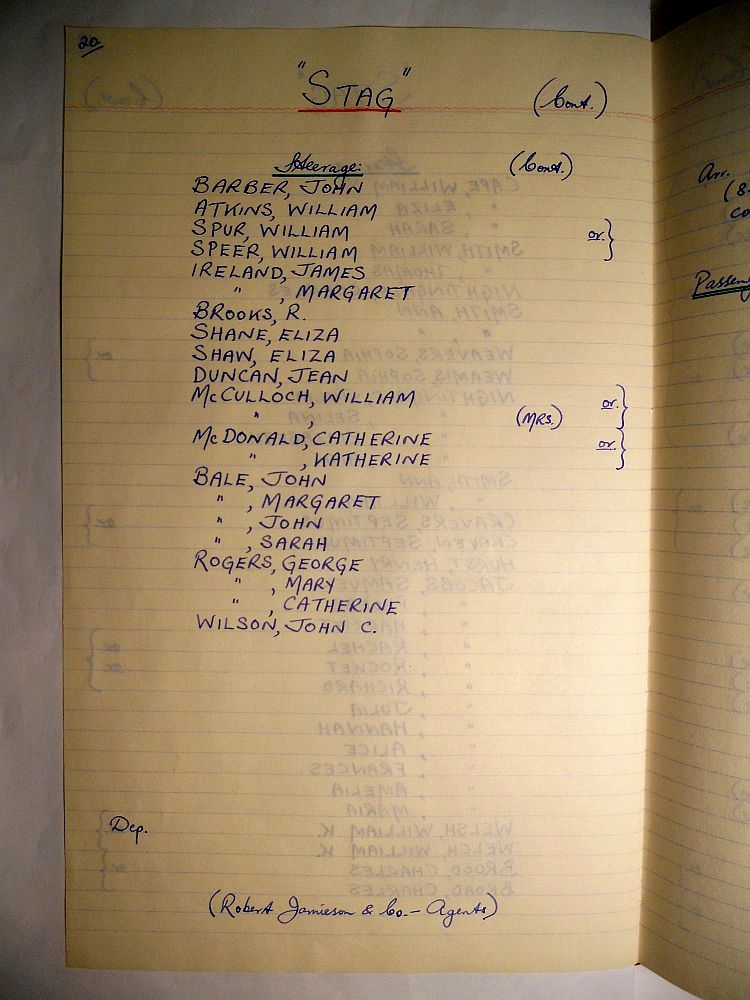 20
"STAG" (Cont.)
Steerage: (Cont.)
BARBER, JOHN
ATKINS, WILLIAM
SPUR, WILLIAM or. }
SPEER, WILLIAM
IRELAND, JAMES
" , MARGARET
BROOKS, R.
SHANE, ELIZA
SHAW, ELIZA
DUNCAN, JEAN
McCULLOCH, WILLIAM or. }
" , (MRS.)
McDONALD, CATHERINE or. }
" , KATHERINE
BALE, JOHN
" , MARGARET
" , JOHN
" , SARAH
ROGERS, GEORGE
" , MARY
" , CATHERINE
WILSON, JOHN C.
Dep.
(Robert Jamieson & Co. - Agents)
Arr.
(8.
co
Passen